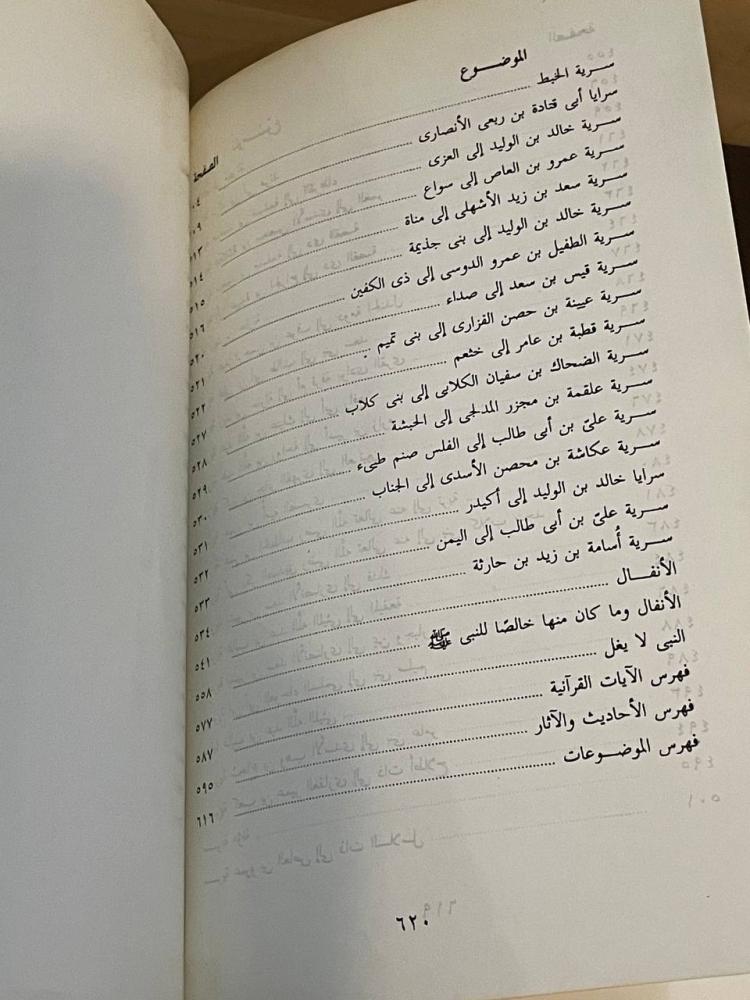 الموضـــوع الصفحة
ســـرية الخبط ........ ٠٤
سرايا أبى قتادة بن ربعى الأنصارى ........ ٠٩
ســـرية خالد بن الوليد إلى العزى ........ ٥١٣
ســـرية عمرو بن العاص إلى سواع ........ ٥١٤
ســـرية سعد بن زيد الأشهلى إلى مناة ........ ٥١٥
ســـرية خالد بن الوليد إلى بنى جذيمة ........ ٥١٦
ســـرية الطفيل بن عمرو الدوسى إلى ذى الكفين ........ ٥٢٠
ســـرية قيس بن سعد إلى صداء ........ ٥٢١
ســـرية عيينة بن حصن الفزارى إلى بنى تميم ........ ٥٢٢
ســـرية قطبة بن عامر إلى خثعم ........ ٥٢٧
ســـرية الضحاك بن سفيان الكلابى إلى بنى كلاب ........ ٥٢٨
ســـرية علقمة بن مجزر المدلجى إلى الحبشة ........ ٥٢٩
ســـرية علىّ بن أبى طالب إلى الفلس صنم طيىء ........ ٥٣٠
ســـرية عكاشة بن محصن الأسدى إلى الجناب ........ ٥٣١
سرايا خالد بن الوليد إلى أكيدر ........ ٥٣٢
ســـرية علىّ بن أبى طالب إلى اليمن ........ ٥٣٣
ســـرية أُسامة بن زيد بن حارثة ........ ٥٣٤
الأنفـــال ........ ٥٤١
الأنفال وما كان منها خالصًا للنبى ﷺ ........ ٥٥٨
النبى لا يغل ........ ٥٧٧
فهرس الآيات القرآنية ........ ٥٨٧
فهرس الأحاديث والآثار ........ ٥٩٥
فهرس الموضـــوعات ........ ٦١٦
٦٢٠